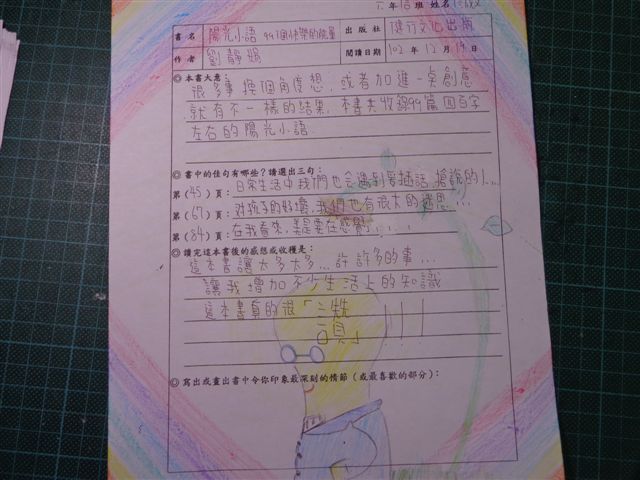 六年 信 班 姓名
書名 陽光小語 99個快樂的能量 出版社 健行文化出版
作者 劉靜娟 閱讀日期 102年12月19日
◎本書大意：
很多事換個角度想，或者加進一點創意
就有不一樣的結果，本書共收錄99篇四百字
左右的陽光小語
◎書中的佳句有哪些？請選出三句：
第(45)頁：日常生活中我們也會遇到要插話、搶說的人...
第(67)頁：對孩子的好壞，我們也有很大的迷思...
第(84)頁：在我看來，美是要在感覺.....
◎讀完這本書後的感想或收穫是：
這本書讓太多太多...許許多多的事...
讓我增加不少生活上的知識
這本書真的很「讚」!!!
◎寫出或畫出書中令你印象最深刻的情節（或最喜歡的部分）：